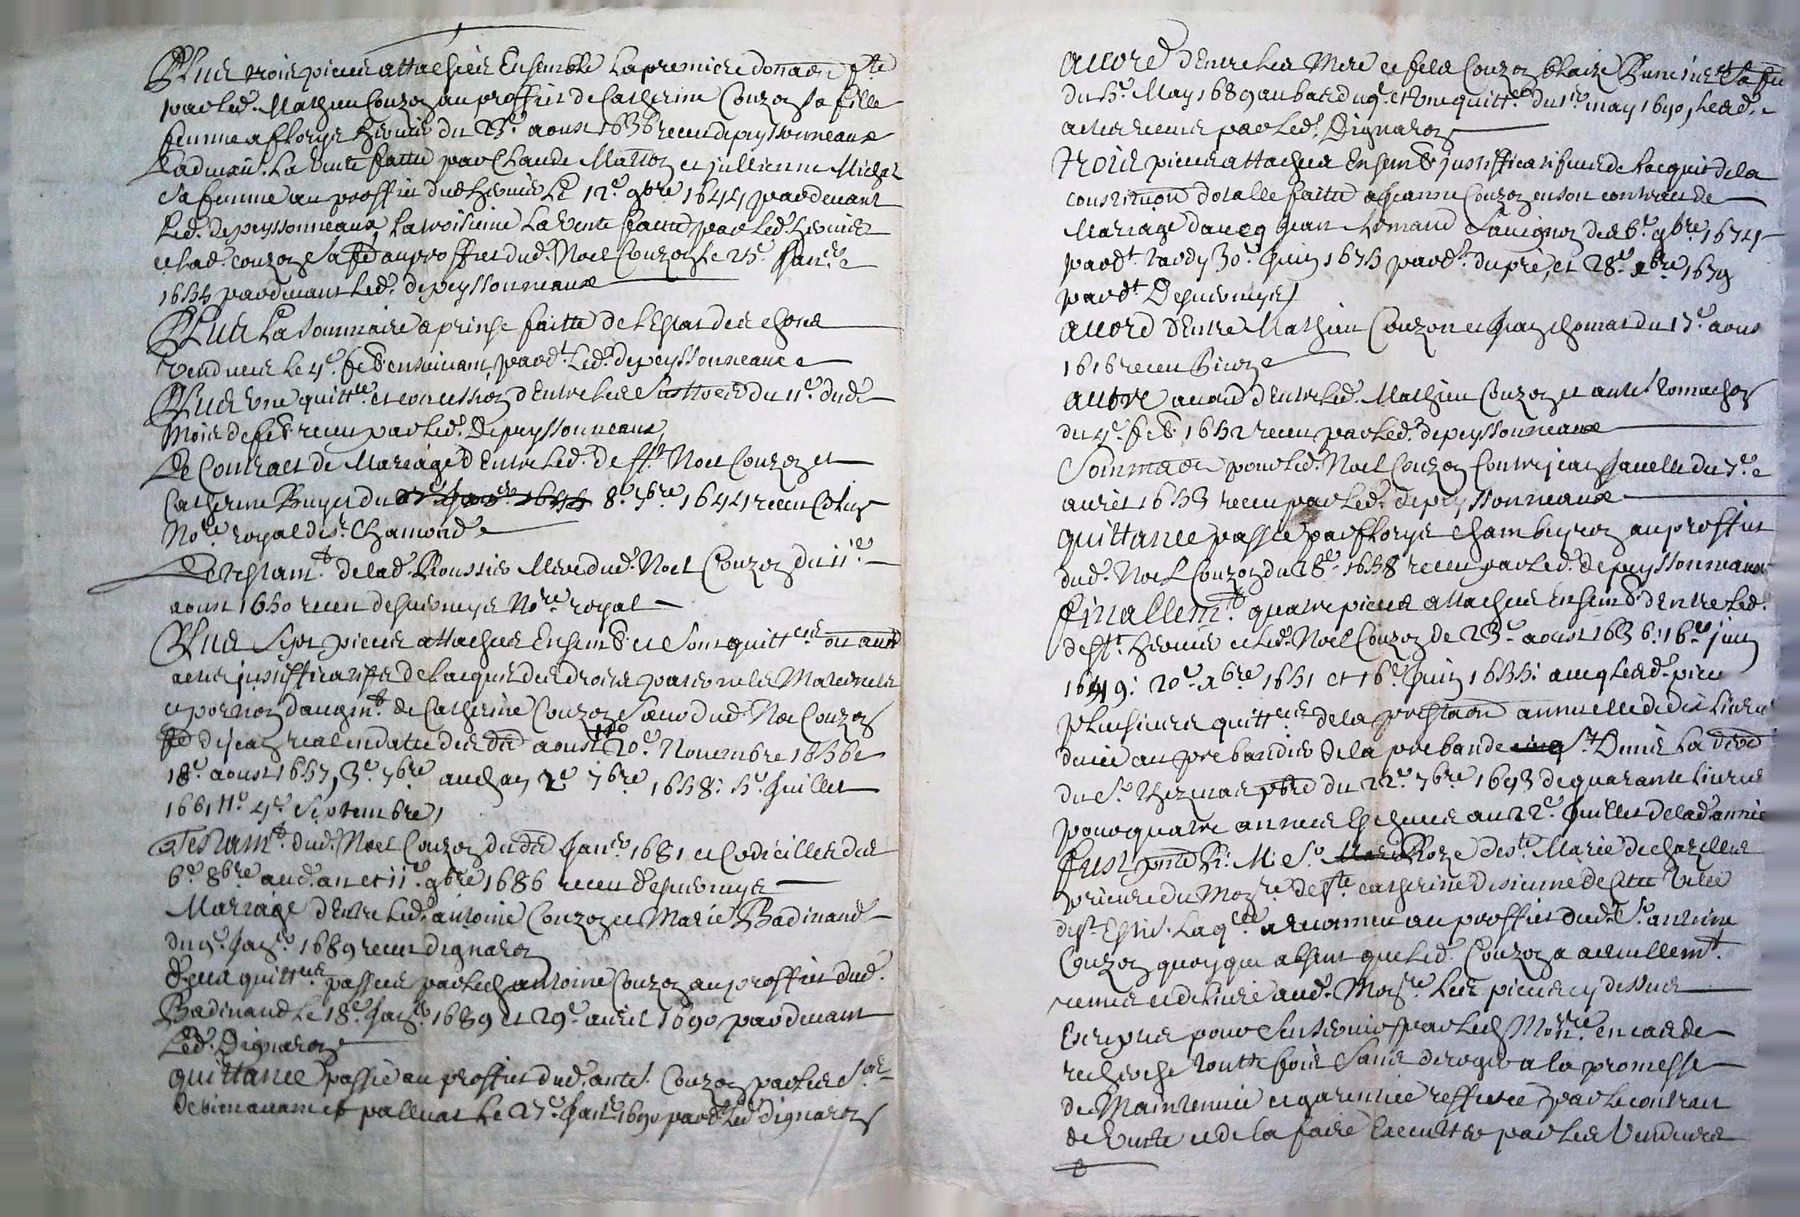 Plus trois pieces attachées Ensemble La premiere donnaon fte
par led. Mathieu Couzon au proffict de Catherine Couzon sa fille
femme a Floris Hervier du 23e aoust 1636 receu depeyssonneaux
La vente faitte par Claude Matton et jullienne
sa femme au proffict dud Hervier Le 12e 9bre 1644 pardevant
Led. depeyssonneaux La troisieme La vente faitte par led. Hervier
et lad. couzon sa fe au proffict dud. Noel Couzon le 25e Janer
1655 pardevant Led. depeyssonneaux
Plus La sommaire aprinse faitte de l'Estat des choses
vendues le 4e feb ensuivant pardt Led. depeyssonneaux
Plus une quittce et concession d'Entre les du 11e dud
Mois de feb receu par led. Depeyssonneaux
Le Contract de Mariage d'Entre led. deft Noel Couzon et
Catherine du 8e 7bre 1644 receu
Nore royal a St Chamond
Testamt de lad. Roussier Mere dud. Noel Couzon du 11e
aoust 1650 receu desverneys Nore royal
Plus Sept pieces attachées Ensemb. et Sont quittces ou autres
actes justifficatifs de l'acquis des droits paternels Maternels
et portion d'augmt de Catherine Couzon Soeur dud. Noel Couzon
en datte des aoust 20e Novembre 1656
18e aoust 1657, 3e 7bre aud an 2e 7bre 1658: 5e Juillet
1661 4e Septembre
Testamt dud. Noel Couzon du Janer 1681 et Codicilles des
6e 8bre aud. an et 11e 9bre 1686 receu desverneys
Mariage d'Entre Led. antoine Couzon et Marie Badinand
du 9e Janer 1689 receu Dignaron
Deux quittces passées par led antoine Couzon au proffict dud.
Badinand le 18e Janer 1689 et 29e avril 1690 pardevant
Led. Dignaron
quittance passée au proffict dud. ant Couzon par les Srs
de et palluat Le 27e Janer 1690 pardt Led dignaron
accord d'Entre les Mere et fils Couzon
du 5e May 1689 au bas duql est une quittce du 1er may 1690, Lesd.
actes receus par led. Dignaron
trois pieces attachées Ensemb justifficatifves de l'acquis de la
constitution dotalle faitte a Jeanne Couzon en son contract de
Mariage avecq Jean Savignon des 6e 9bre 1674
pardt 30e Juin 1675 pardt dupre, et 28e xbre 1679
pardt Desverneys
accord d'Entre Mathieu Couzon et Jean thomas du 17e aoust
1616 receu
autre accord d'Entre led. Mathieu Couzon et
du 4e feb 1652 receu par led. depeyssonneaux
Sommaon pour led. Noel Couzon Contre jean Javelle du 7e
avril 1653 receu par led. depeyssonneaux
quittance passée par Floris Chambeyron au proffict
dud. Noel Couzon du 28e 1658 receu par led. depeyssonneaux
finallemt quatre pieces attachées Ensemb d'Entre Led.
deft Hervier et led. Noel Couzon de 23e aoust 1636: 16e juin
1649: 20e xbre 1651 et 16e Juin 1655: avecq lesd. pieces
plusieurs quittces de la prestaon annuelle de dix livres
deue au prebandier de la prebande St Denis La
du Sr pbre du 22e 7bre 1693 de quarante livres
pour quatre années Escheues au 22e Juillet de lad. année
fust pnte R: M: Sr Roze de ste Marie de chazelles
prieure du Monre de ste catherine de sienne de cette ville
de st Este. Laqlle a recognu au proffict dud. Sr antoine
Couzon quoyque absent que led. Couzon a actuellemt
remis et delivré aud. Monre Les pieces cy dessus
Escriptes pour s'en servir par led Monre en cas de
recherche toutte fois Sans deroger a la promesse
de Maintenue et garentie reffirée par le contract
de vente et de la faire Executter par les vendeurs